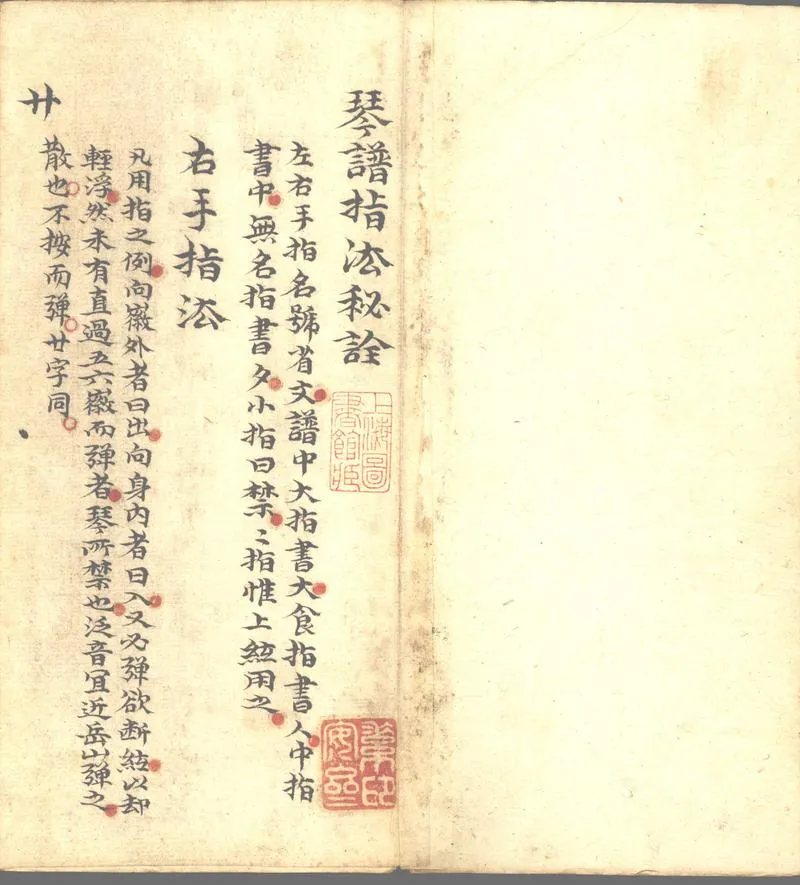 琴譜指法秘詮
左右手指名號省文譜中大指書大食指書人中指
書中無名指書夕小指曰禁〻指惟上絃用之
右手指法
凡用指之例向徽外者曰出向身内者曰入又必弹欲断絃以却
輕浮然未有直過五六徽而弹者琴所禁也泛音冝近岳山弹之
廾
散也不按而弹廾字同
上海圖書館藏